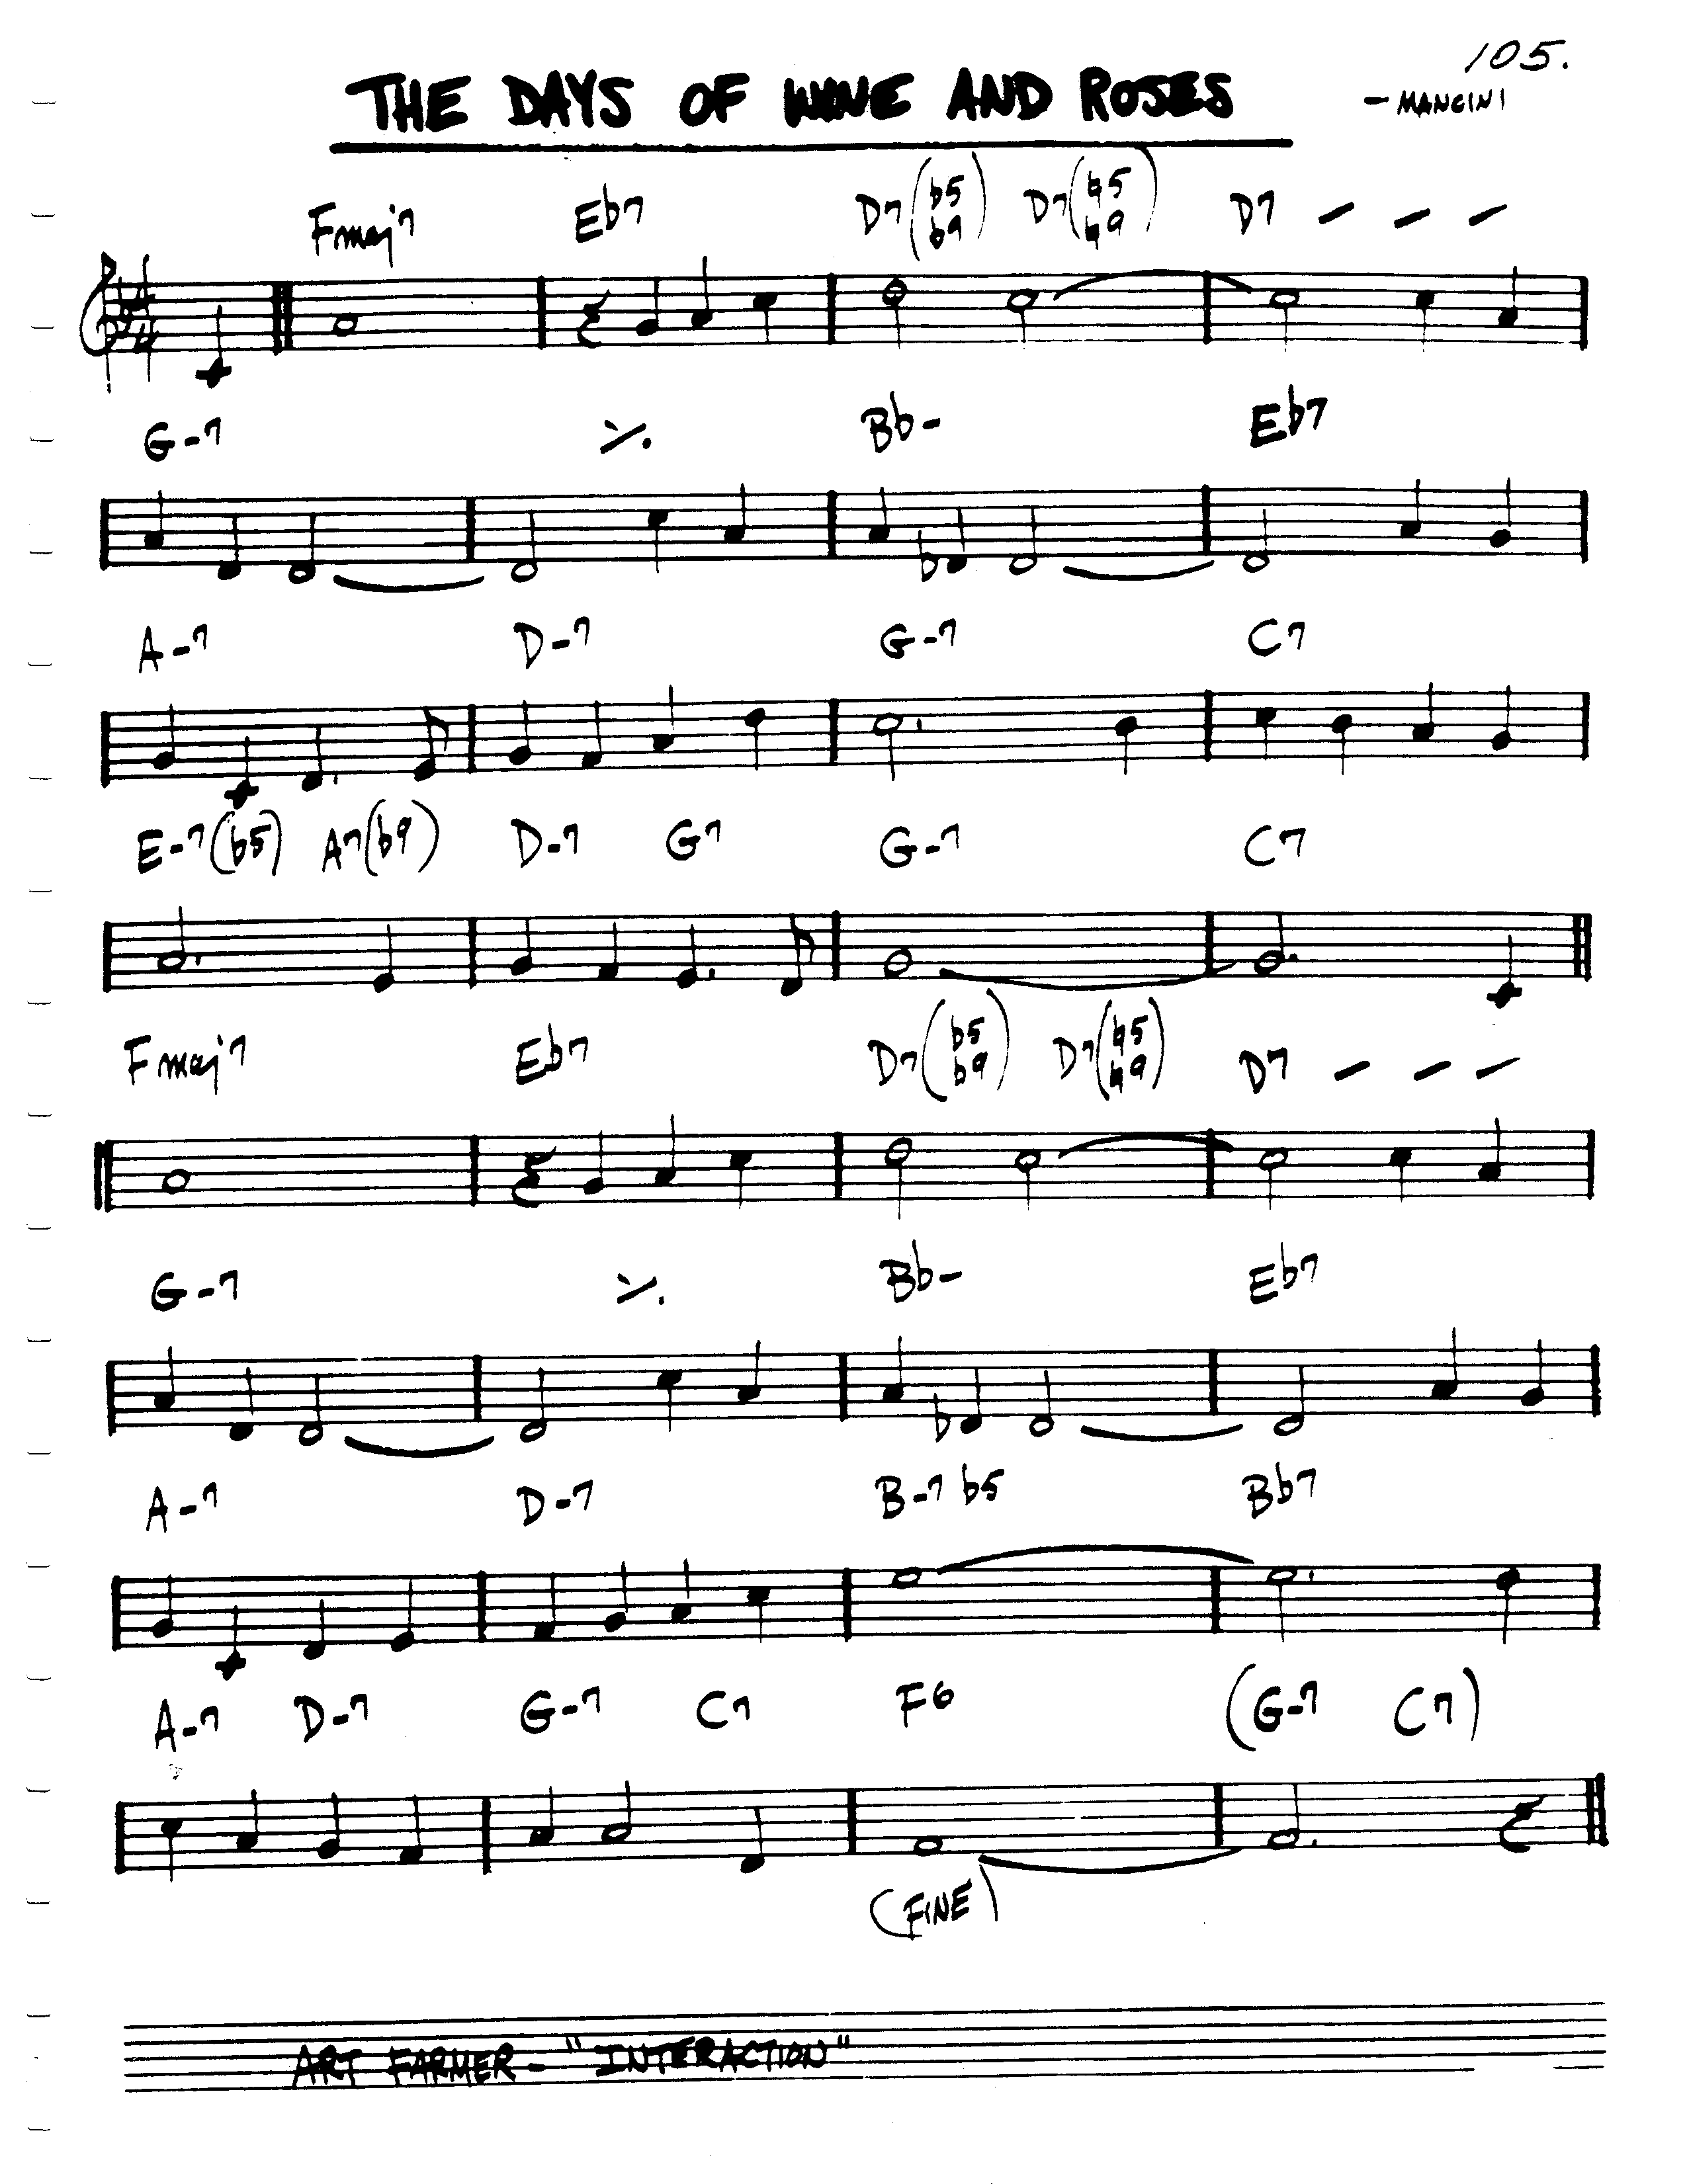 105.
THE DAYS OF WINE AND ROSES
- MANCINI
Fmaj7 Eb7 D7(b5 b9) D7(♮5 ♮9) D7 - - -
4 4
G-7 ٪ Bb- Eb7
A-7 D-7 G-7 C7
E-7(b5) A7(b9) D-7 G7 G-7 C7
Fmaj7 Eb7 D7(b5 b9) D7(♮5 ♮9) D7 - - -
G-7 ٪ Bb- Eb7
A-7 D-7 B-7 b5 Bb7
A-7 D-7 G-7 C7 F6 (G-7 C7)
(FINE)
ART FARMER - "INTERACTION"